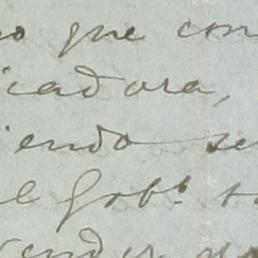 o que con
icadora,
iendo se
el Gobº t
ender